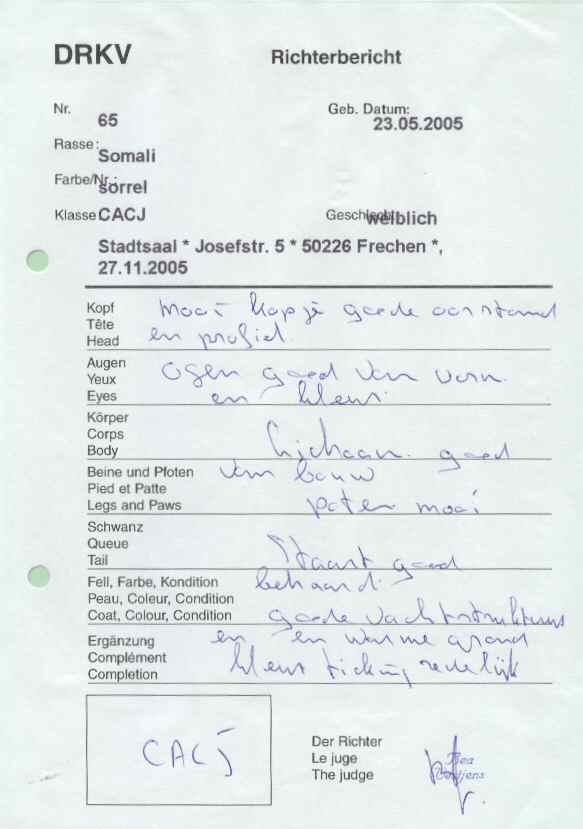 DRKV Richterbericht
Nr. 65 Geb. Datum: 23.05.2005
Rasse: Somali
Farbe/Nr.: sorrel
Klasse CACJ Geschlecht: weiblich
Stadtsaal * Josefstr. 5 * 50226 Frechen *,
27.11.2005
Kopf mooi kopje goede oorstand
Tête
Head en profiel.
Augen
Yeux ogen goed van vorm
Eyes en kleur.
Körper
Corps
Body Lichaam goed
Beine und Pfoten van bouw
Pied et Patte
Legs and Paws poten mooi
Schwanz
Queue
Tail Staart goed
Fell, Farbe, Kondition behaard.
Peau, Couleur, Condition
Coat, Colour, Condition goede vachtstruktuur
Ergänzung en en warme grond
Complément kleur ticking redelijk
Completion
CACJ
Der Richter
Le juge
The judge